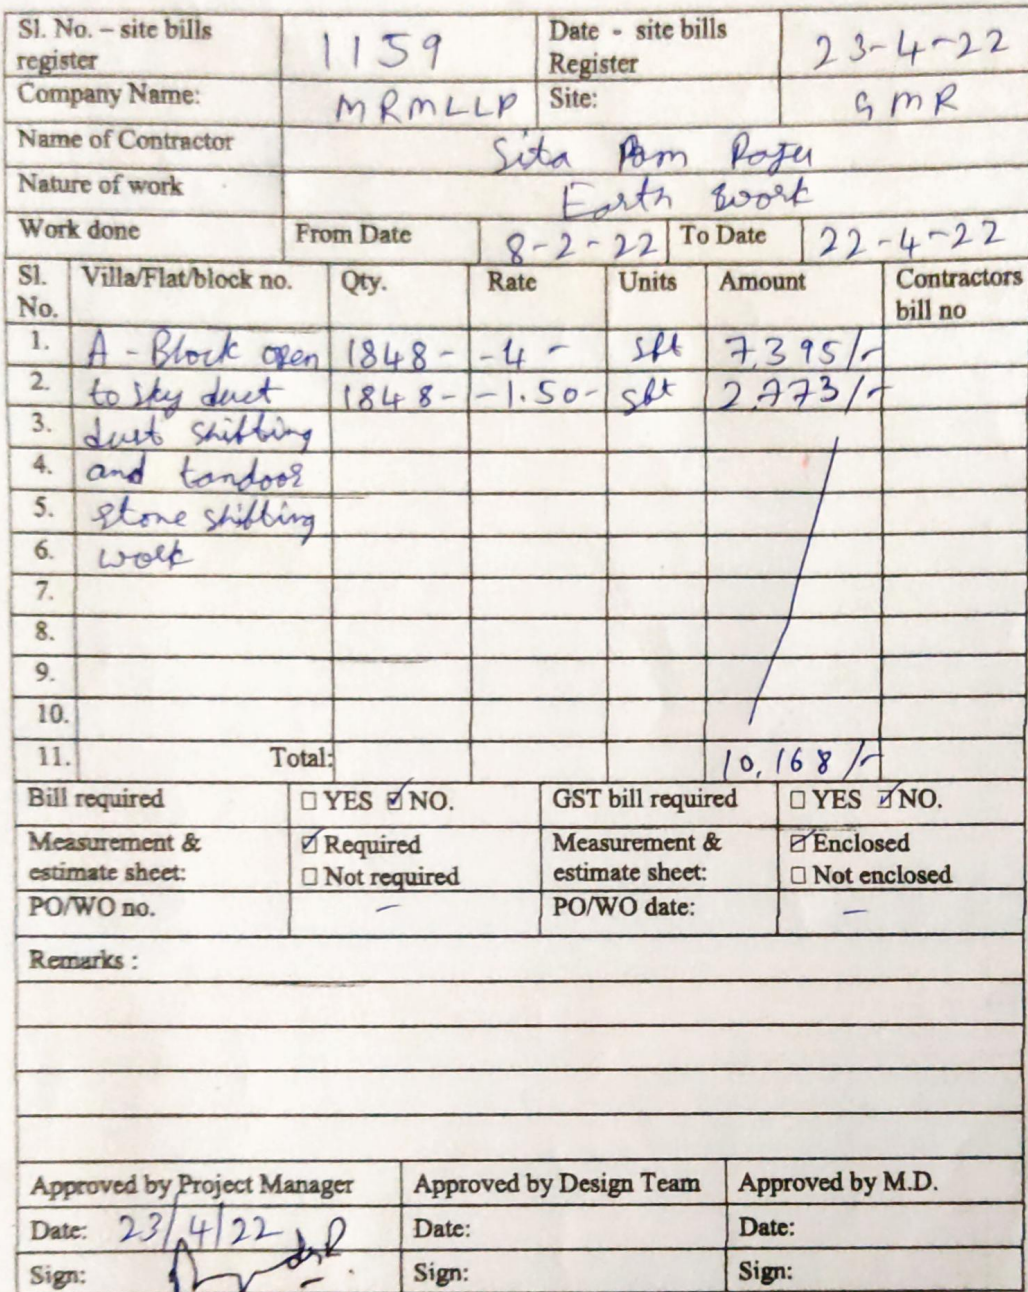 Sl. No. – site bills register 1159 Date - site bills Register 23-4-22
Company Name: MRMLLP Site: GMR
Name of Contractor Sita Ram Raju
Nature of work Earth work
Work done From Date 8-2-22 To Date 22-4-22
Sl. No. Villa/Flat/block no. Qty. Rate Units Amount Contractors bill no
1. A - Block open 1848- -4- sft 7,395/-
2. to sky duct 1848- -1.50- sft 2,773/-
3. dust shifting
4. and tandoor
5. stone shifting
6. work
7.
8.
9.
10.
11. Total: 10,168/-
Bill required □ YES ☑ NO. GST bill required □ YES ☑ NO.
Measurement & estimate sheet: ☑ Required □ Not required Measurement & estimate sheet: ☑ Enclosed □ Not enclosed
PO/WO no. – PO/WO date: –
Remarks :
Approved by Project Manager Approved by Design Team Approved by M.D.
Date: 23/4/22 Date: Date:
Sign: Sign: Sign: